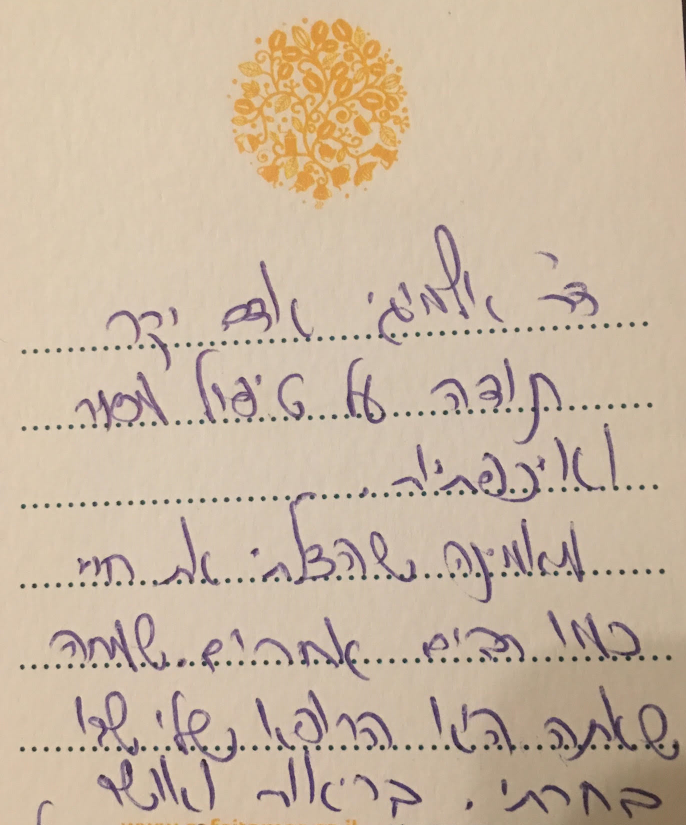 ד"ר אילמיגי אדם יקר
תודה על טיפול מסור
ואיכפתיות.
מאמינה שהצלת את חיי
כמו רבים אחרים. שמחה
שאתה הינו הרופא שלי שבו
בחרתי. בריאות ואושר